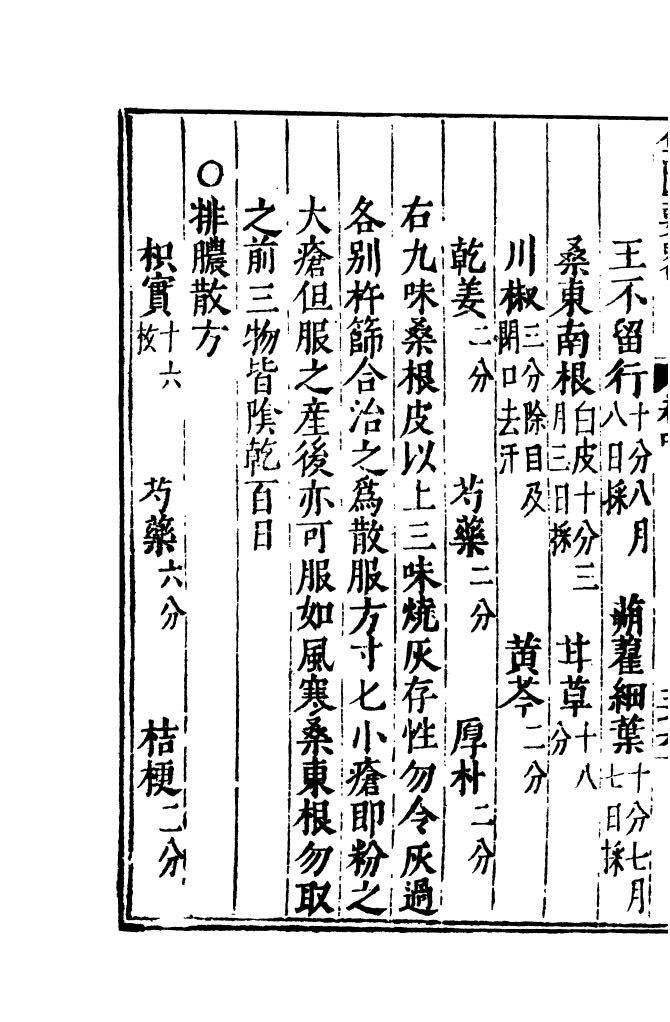 王不留行十分八月八日採　蒴藋細葉十分七月七日採
桑東南根白皮十分三月三日採　甘草十八分
川椒三分除目及閉口去汗　黄芩二分
乾姜二分　芍藥二分　厚朴二分
右九味桑根皮以上三味燒灰存性勿令灰過
各别杵篩合治之爲散服方寸匕小瘡即粉之
大瘡但服之産後亦可服如風寒桑東根勿取
之前三物皆陰乾百日
○排膿散方
枳實十六枚　芍藥六分　桔梗二分